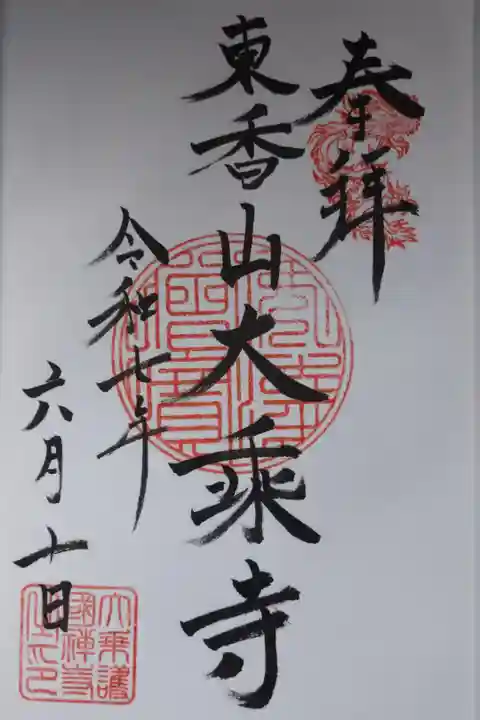 奉拝
東香山大乘寺
令和七年
六月十日
大乗護
國禅寺